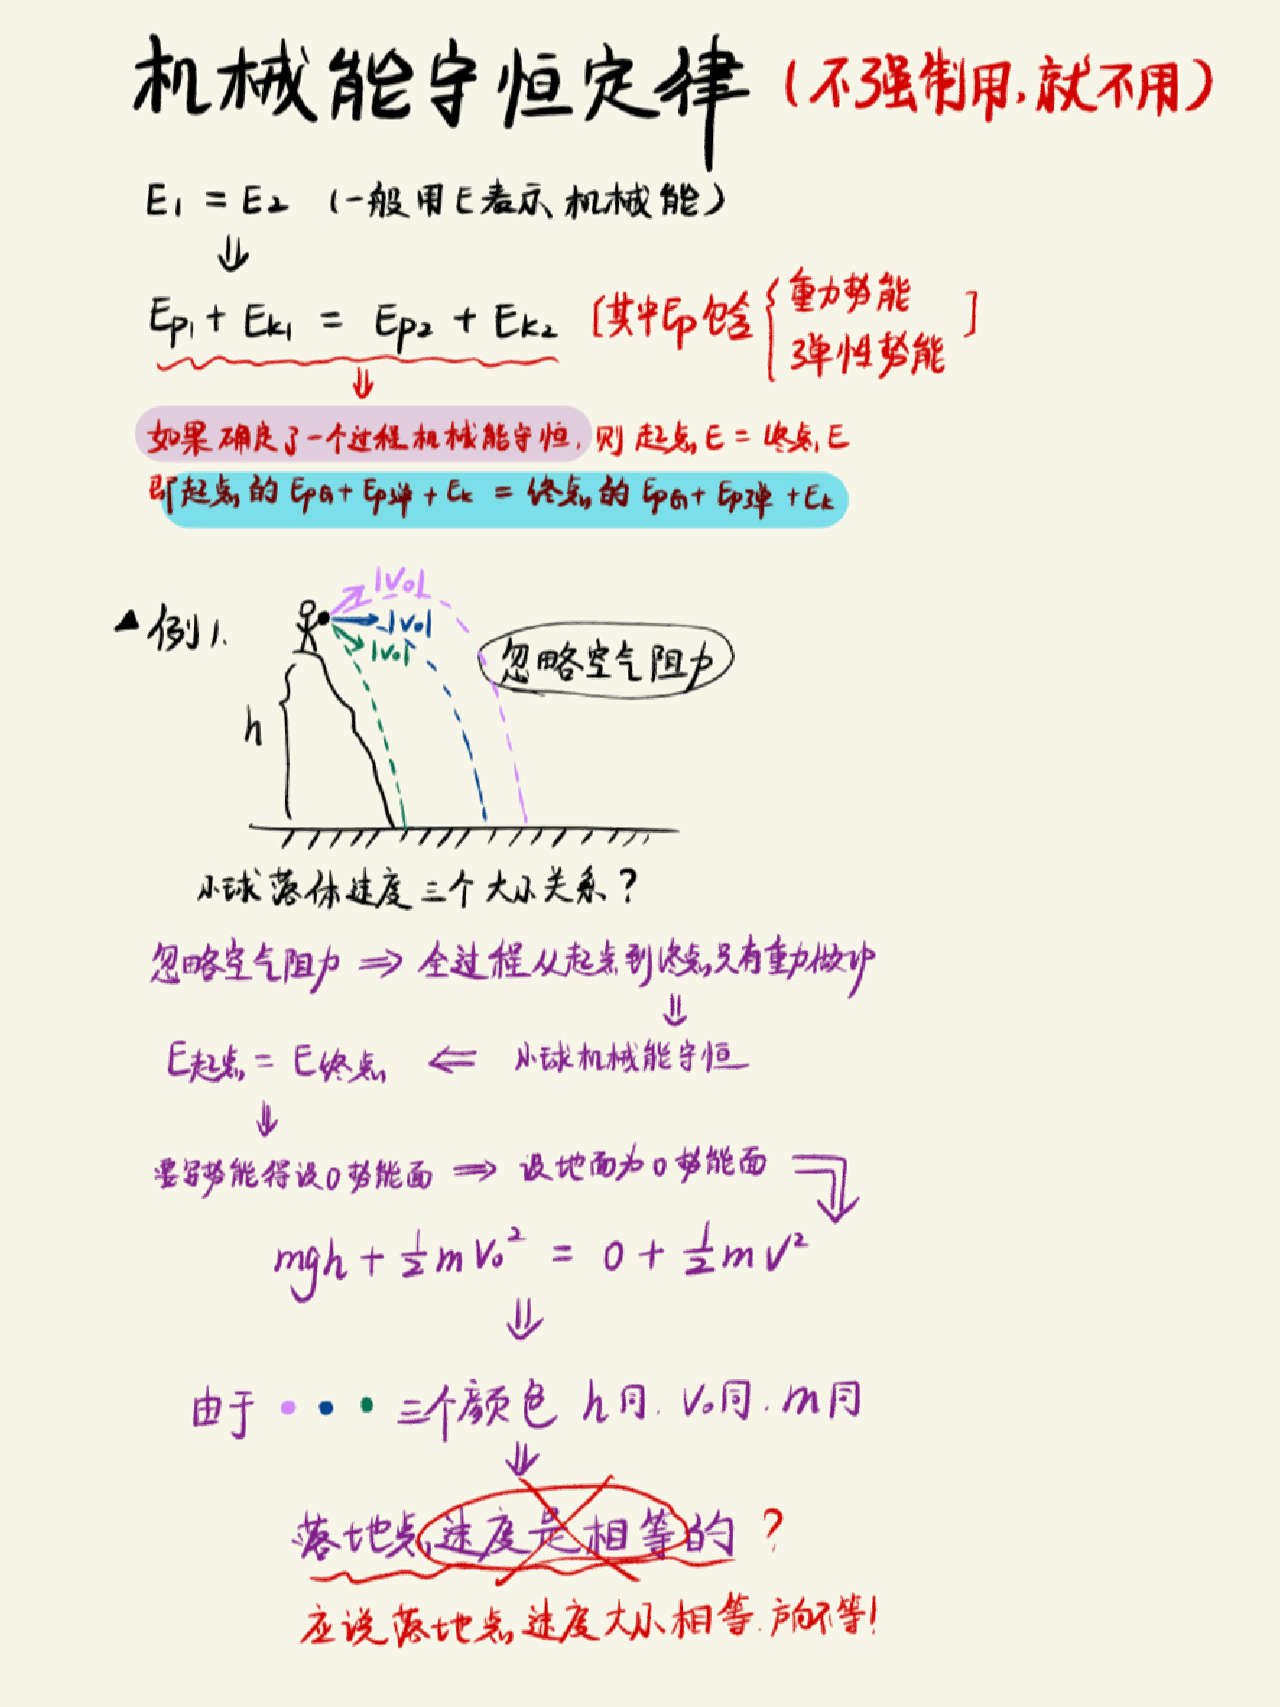 机械能守恒定律（不强制用,就不用）
E₁ = E₂ （一般用E表示机械能）
⇓
Ep₁ + Ek₁ = Ep₂ + Ek₂ [其中Ep包含{重力势能
弹性势能]
⇓
如果确定了一个过程机械能守恒,则起点E = 终点E
即起点的 EpG + Ep弹 + Ek = 终点的 EpG + Ep弹 + Ek
▲例1.
|V₀|
|V₀|
|V₀|
忽略空气阻力
h
小球落体速度三个大小关系?
忽略空气阻力 ⇒ 全过程从起点到终点只有重力做功
⇓
E起点 = E终点 ⇐ 小球机械能守恒
⇓
要写势能得设0势能面 ⇒ 设地面为0势能面
mgh + ½mV₀² = 0 + ½mV²
⇓
由于 • • • 三个颜色 h同. V₀同. m同
⇓
落地点速度是相等的?
应说落地点速度大小相等.方向不等!